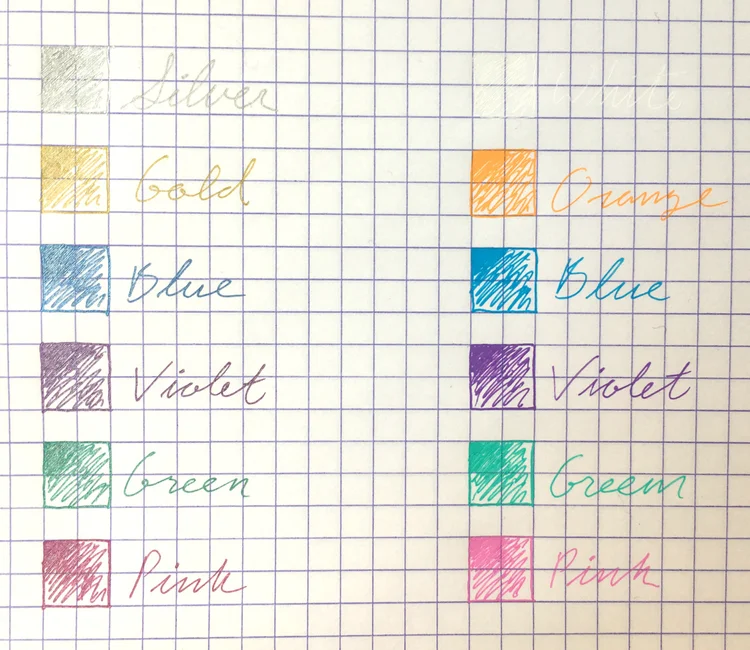 Silver
White
Gold
Orange
Blue
Blue
Violet
Violet
Green
Greem
Pink
Pink